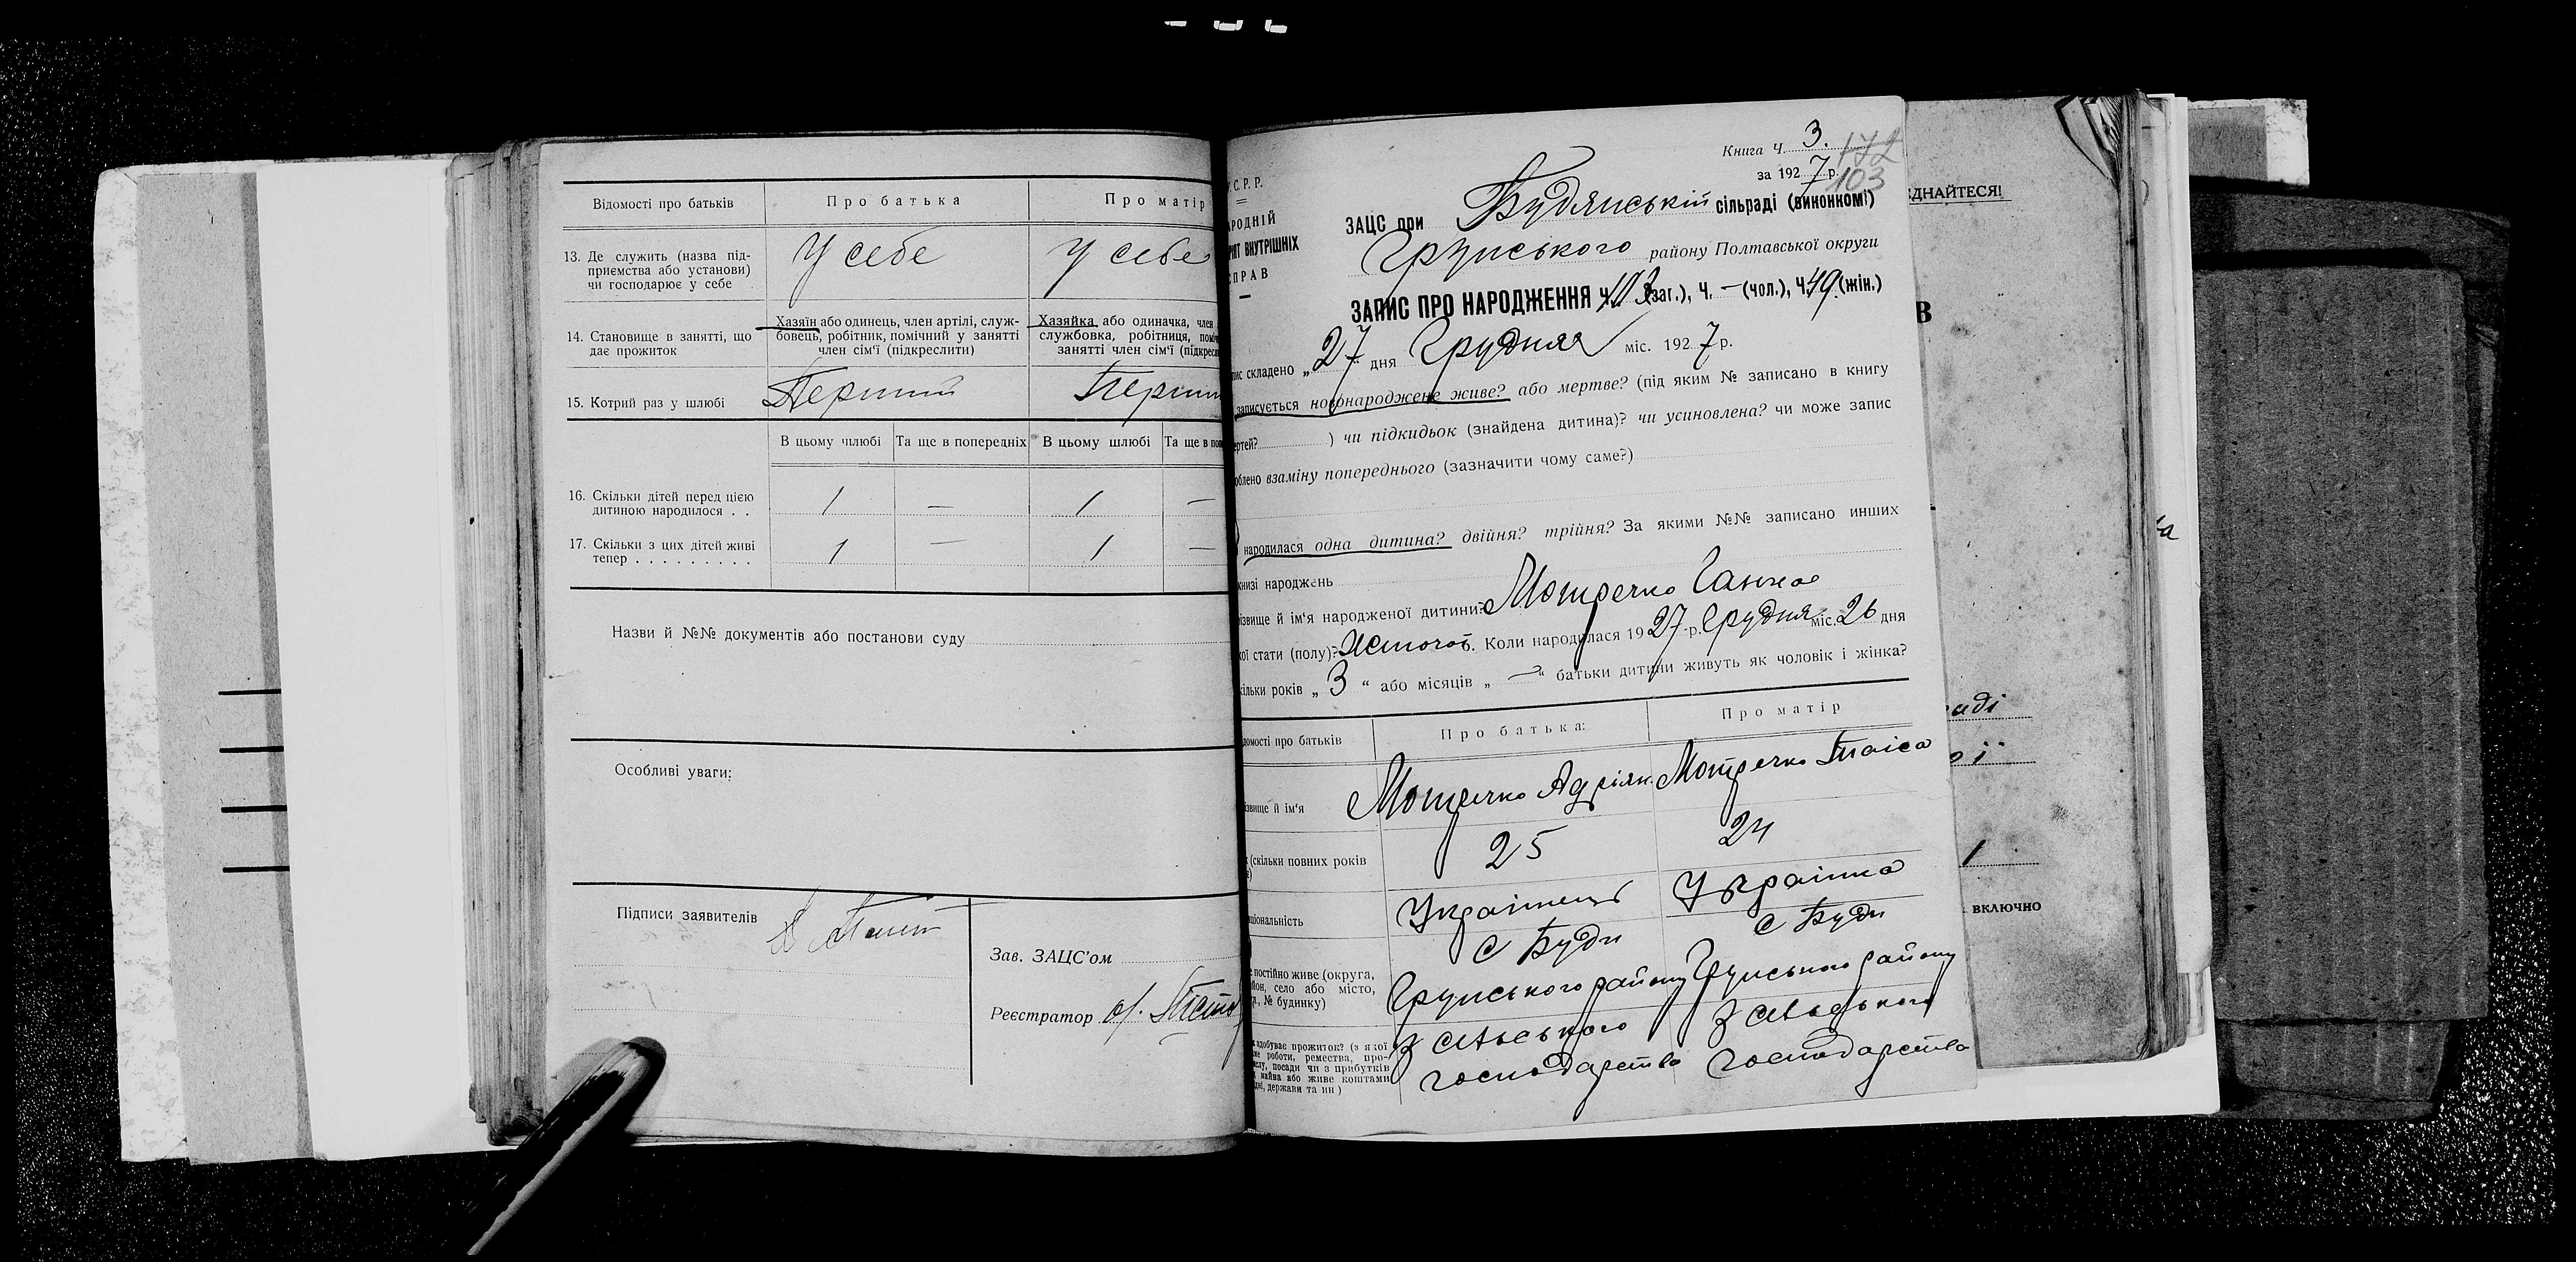 Відомості про батьків
Про батька
Про матір
13. Де служить (назва під-
приємства або установи)
чи господарює у себе
У себе
У себе
14. Становище в занятті, що
дає прожиток
Хазяїн або одинець, член артілі, служ-
бовець, робітник, помічний у занятті
член сім'ї (підкреслити)
Хазяйка або одиначка, член
службовка, робітниця, поміч
занятті член сім'ї (підкресл
15. Котрий раз у шлюбі
Перший
Перши
В цьому шлюбі
Та ще в попередніх
В цьому шлюбі
Та ще в поп
16. Скільки дітей перед цією
дитиною народилося . .
1 — 1 —
17. Скільки з цих дітей живі
тепер . . . . . . . . .
1 — 1 —
Назви й №№ документів або постанови суду
Особливі уваги:
Підписи заявителів
Зав. ЗАЦС'ом
Реєстратор
Книга Ч. 3.
172
за 1927 р.
103
С. Р. Р.
РОДНІЙ
ВНУТРІШНІХ
ПРАВ
ЗАЦС при Будянській сільраді (виконкомі)
Грунського району Полтавської округи
ЗАПИС ПРО НАРОДЖЕННЯ Ч. 103 (заг.), Ч. — (чол.), Ч. 49 (жін.)
пис складено „27" дня Грудня міс. 1927 р.
записується новонароджене живе? або мертве? (під яким № записано в книгу
ертей? ) чи підкидьок (знайдена дитина)? чи усиновлена? чи може запис
облено взаміну попереднього (зазначити чому саме?)
народилася одна дитина? двійня? трійня? За якими №№ записано инших
книзі народжень
ізвище й ім'я народженої дитини? Мотречко Ганна
кої стати (полу)? Жіночої. Коли народилася 1927 р. Грудня міс. 26 дня
кільки років „3" або місяців „—" батьки дитини живуть як чоловік і жінка?
домості про батьків
Про батька:
Про матір
ізвище й ім'я
Мотречко Адріян
Мотречко Таіса
(скільки повних років
25
24
ціональність
Українець
Українка
постійно живе (округа,
йон, село або місто,
№ будинку)
с Буди
Грунського району
с Буди
Грунського району
здобуває прожиток? (з якої
роботи, ремества, про-
посади чи з прибутків
майна або живе коштами
держави та ин)
З сільського
господарства
З сільського
господарства
ЄДНАЙТЕСЯ!
В
аді
ої
1
включно